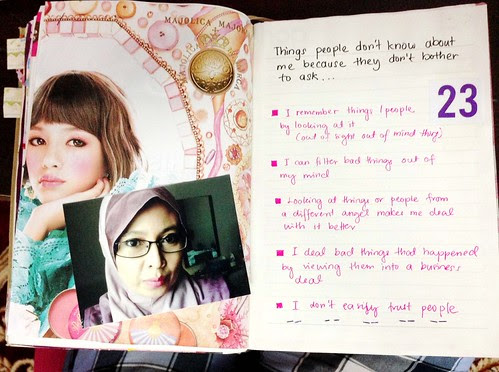 MAJOLICA MAJOR
Things people don't know about
me because they don't bother
to ask...
23
I remember things / people
by looking at it
(out of sight out of mind thing)
I can filter bad things out of
my mind
Looking at things or people from
a different angel makes me deal
with it better
I deal bad things that happened
by viewing them into a business
deal
I don't easily trust people